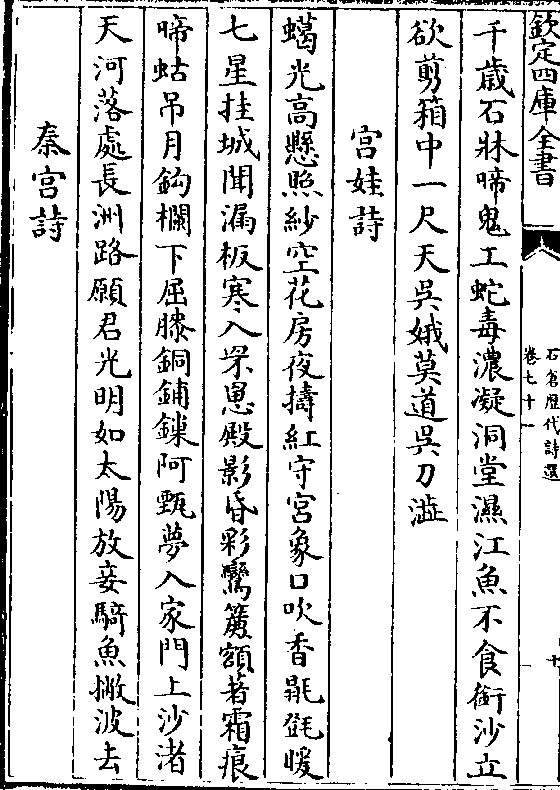 欽定四庫全書
石倉歷代詩選
卷七十一
十
千歲石牀啼鬼工蛇毒濃凝洞堂濕江魚不食銜沙立
欲剪箱中一尺天吳娥莫道吳刀澁
宮娃詩
蠟光高懸照紗空花房夜擣紅守宮象口吹香毾㲪暖
七星挂城聞漏板寒入罘罳殿影昏彩鸞簾額著霜痕
啼蛄吊月鈎欄下屈膝銅鋪鏁阿甄夢入家門上沙渚
天河落處長洲路願君光明如太陽放妾騎魚撇波去
秦宮詩